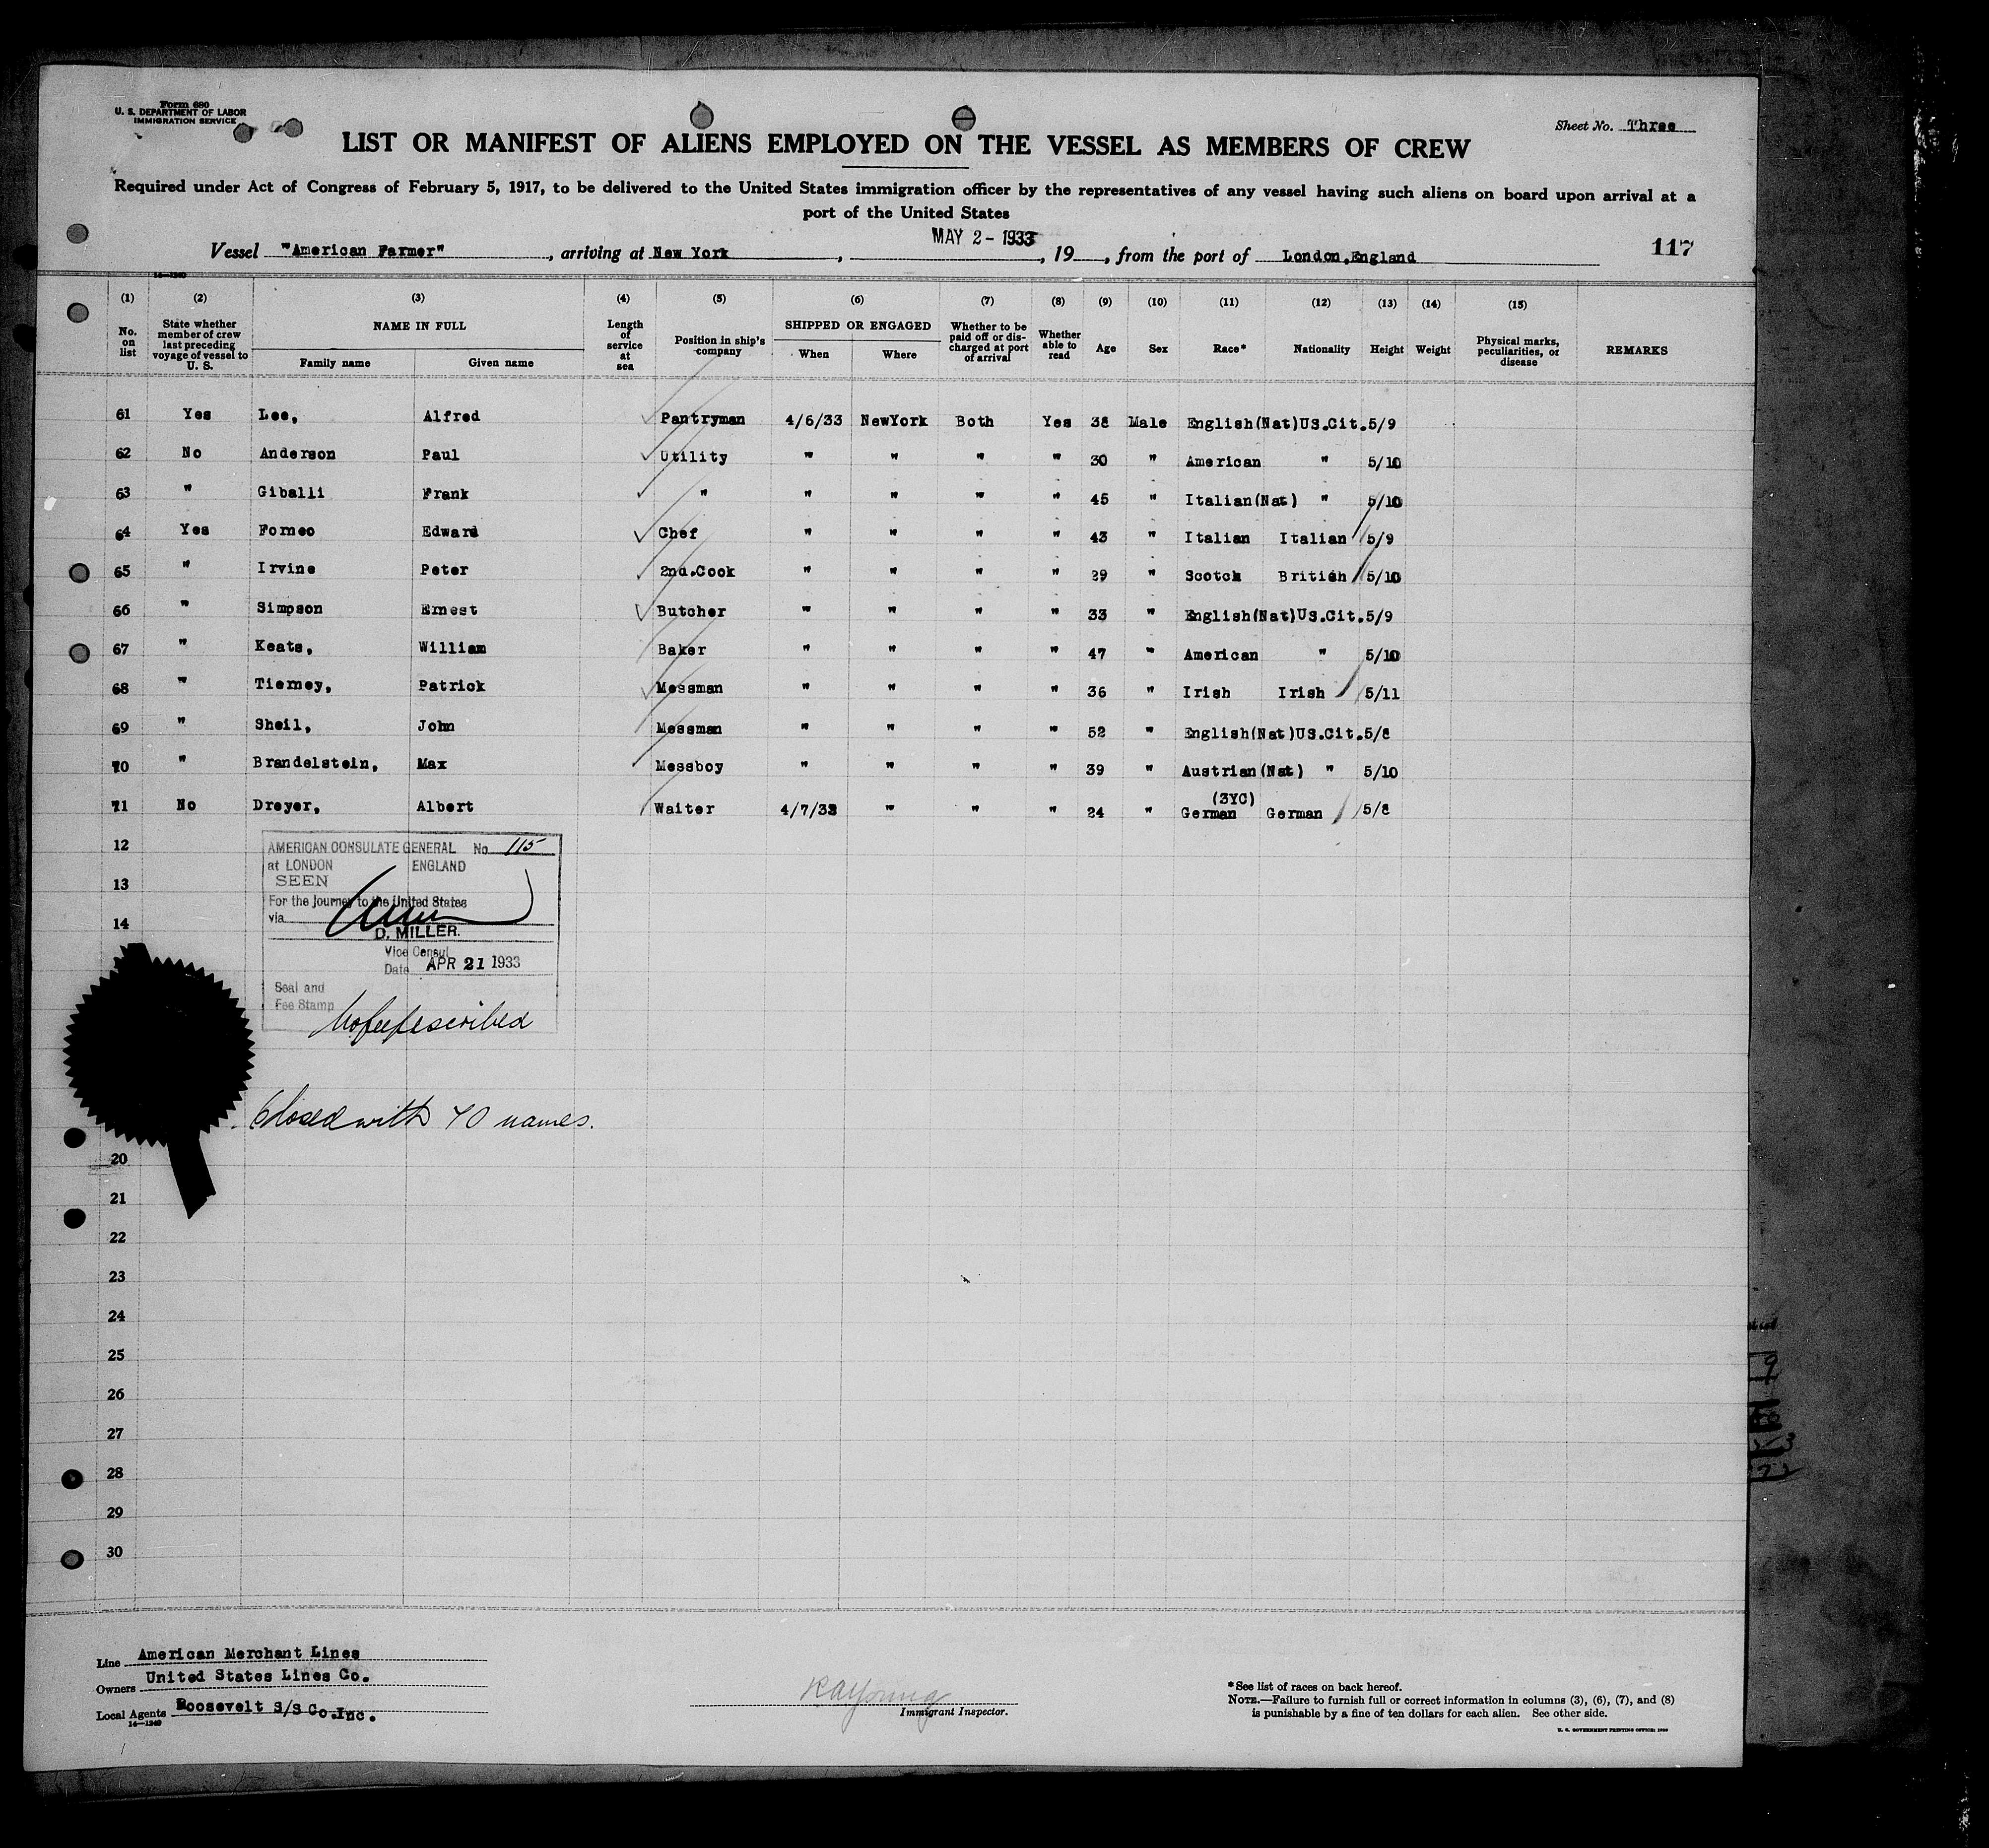 Form 680
U. S. DEPARTMENT OF LABOR
IMMIGRATION SERVICE
Sheet No. Three
LIST OR MANIFEST OF ALIENS EMPLOYED ON THE VESSEL AS MEMBERS OF CREW
Required under Act of Congress of February 5, 1917, to be delivered to the United States immigration officer by the representatives of any vessel having such aliens on board upon arrival at a
port of the United States
MAY 2 - 1933
Vessel "American Farmer", arriving at New York, , 19 , from the port of London,England 117
14—1240
(1) (2) (3) (4) (5) (6) (7) (8) (9) (10) (11) (12) (13) (14) (15)
No. on list
State whether member of crew last preceding voyage of vessel to U. S.
NAME IN FULL
Family name Given name
Length of service at sea
Position in ship's company
SHIPPED OR ENGAGED
When Where
Whether to be paid off or discharged at port of arrival
Whether able to read
Age Sex Race* Nationality Height Weight
Physical marks, peculiarities, or disease
REMARKS
61 Yes Lee, Alfred Pantryman 4/6/33 NewYork Both Yes 38 Male English(Nat)US.Cit.5/9
62 No Anderson Paul Utility " " " " 30 " American " 5/10
63 " Giballi Frank " " " " " 45 " Italian(Nat) " 5/10
64 Yes Forneo Edward Chef " " " " 43 " Italian Italian 5/9
65 " Irvine Peter 2nd.Cook " " " " 29 " Scotch British 5/10
66 " Simpson Ernest Butcher " " " " 33 " English(Nat)US.Cit.5/9
67 " Keats, William Baker " " " " 47 " American " 5/10
68 " Tierney, Patrick Messman " " " " 36 " Irish Irish 5/11
69 " Sheil, John Messman " " " " 52 " English(Nat)US.Cit.5/8
70 " Brandelstein, Max Messboy " " " " 39 " Austrian(Nat) " 5/10
(3YC)
71 No Dreyer, Albert Waiter 4/7/33 " " " 24 " German German 5/8
12
13
14
AMERICAN CONSULATE GENERAL No. 115
at LONDON ENGLAND
SEEN
For the journey to the United States
via
D. MILLER.
Vice Consul
Date APR 21 1933
Seal and
Fee Stamp
No fee prescribed
Closed with 70 names.
20
21
22
23
24
25
26
27
28
29
30
Line American Merchant Lines
Owners United States Lines Co.
Local Agents Roosevelt S/S Co.Inc.
14—1240
Immigrant Inspector.
*See list of races on back hereof.
NOTE.—Failure to furnish full or correct information in columns (3), (6), (7), and (8)
is punishable by a fine of ten dollars for each alien. See other side.
U. S. GOVERNMENT PRINTING OFFICE: 1930